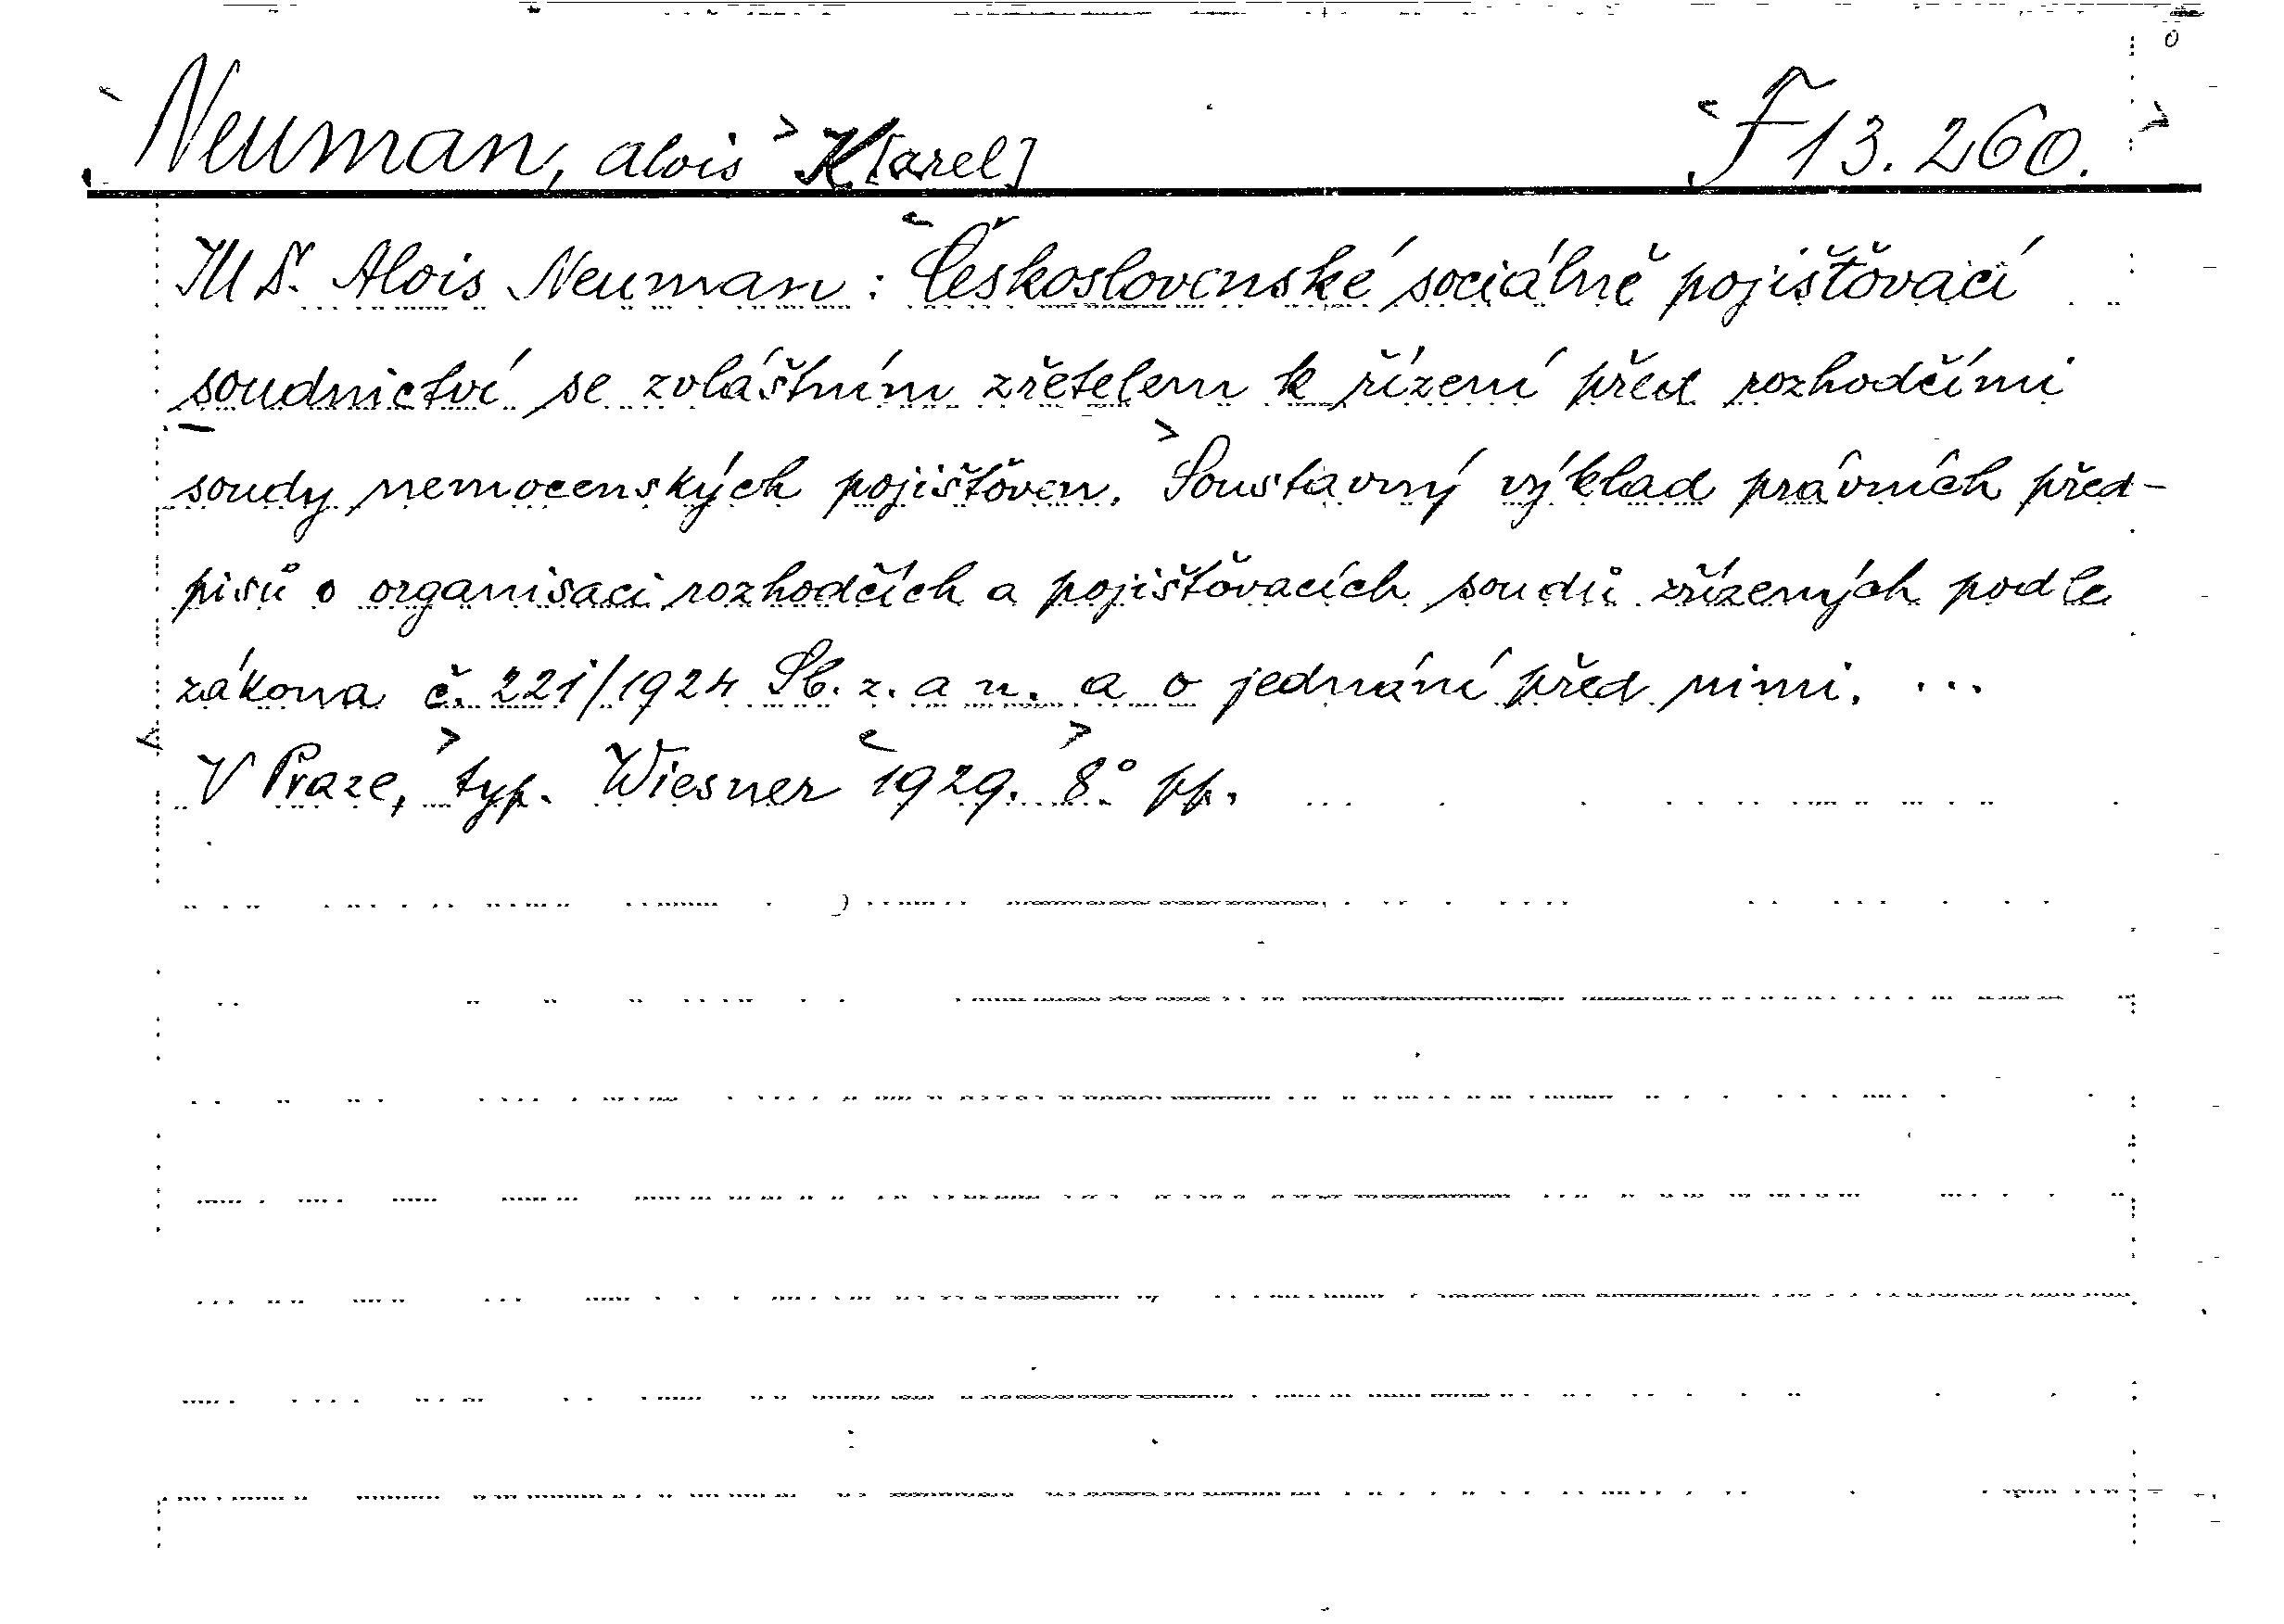 Neuman, Alois K[arel] F 13.260.
JUDr. Alois Neuman: Československé sociálně pojišťovací
soudnictví se zvláštním zřetelem k řízení před rozhodčími
soudy nemocenských pojišťoven. Soustavný výklad právních před-
pisů o organisaci rozhodčích a pojišťovacích soudů zřízených podle
zákona č. 221/1924 Sb. z. a n. a o jednání před nimi. ...
V Praze, typ. Wiesner 1929. 8° pp.